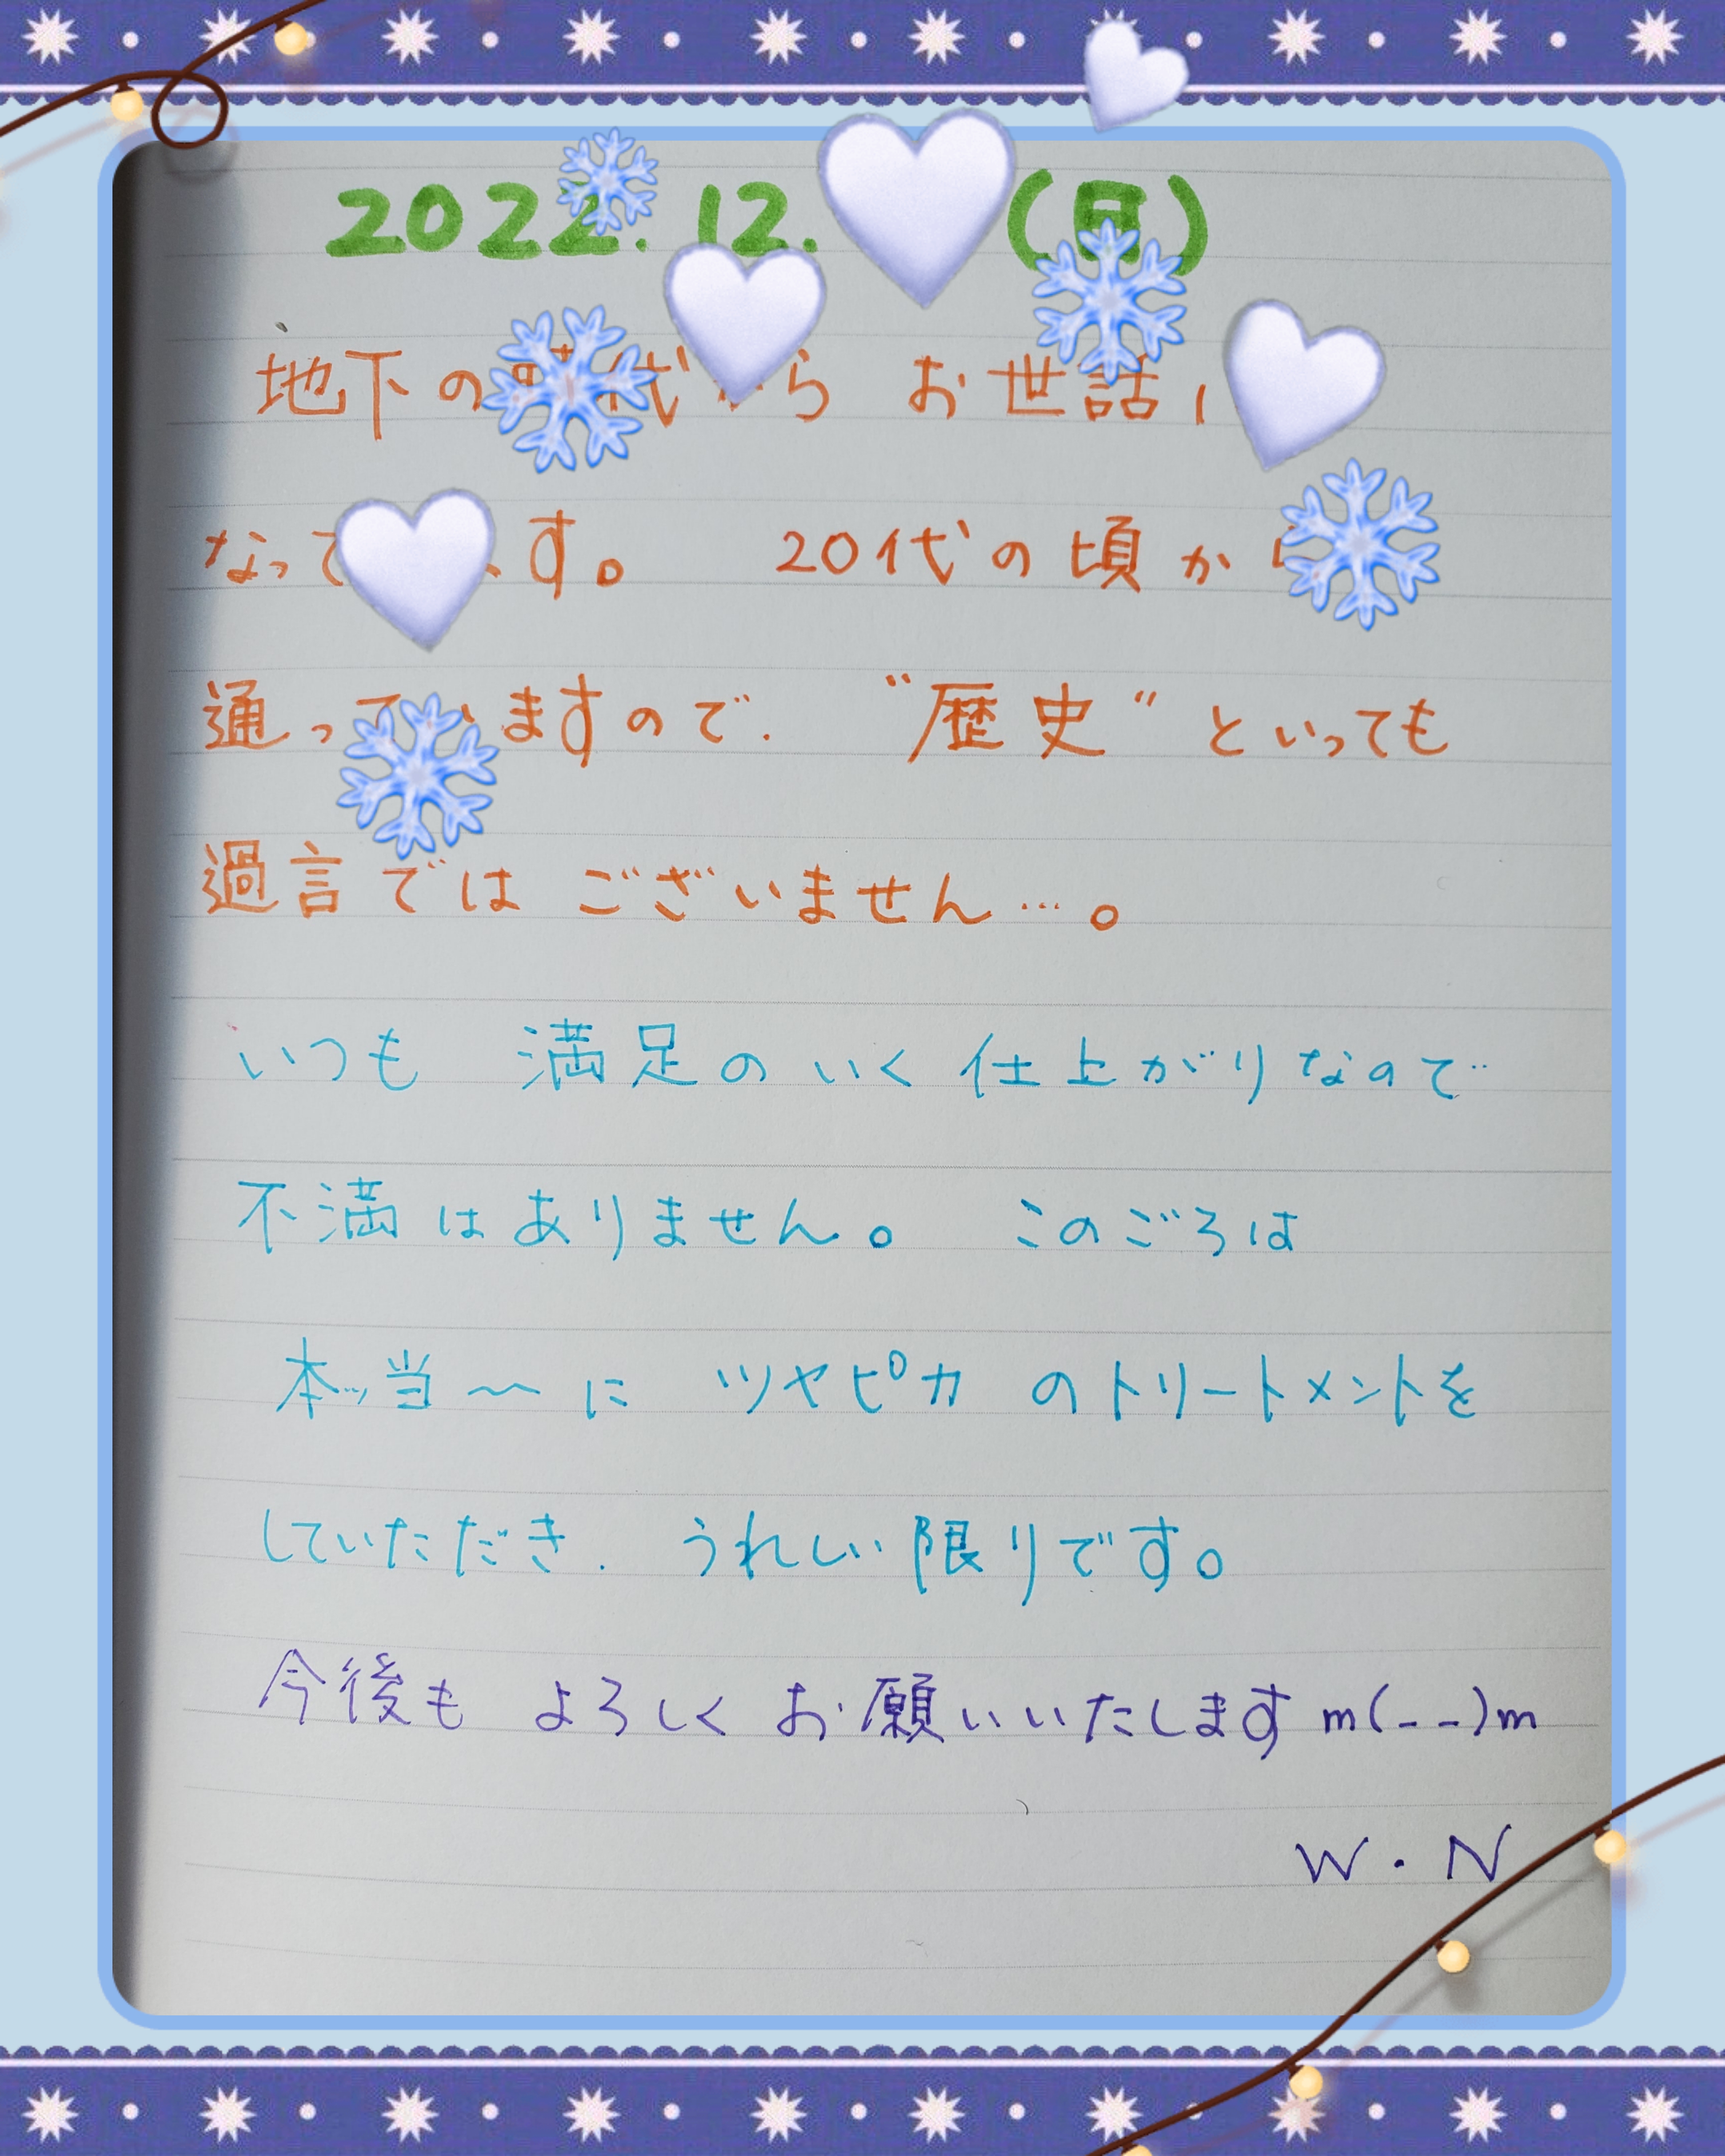 2022. 12. (月)
地下の時代から お世話に
なっています。 20代の頃から
通っていますので. “歴史”といっても
過言では ございません…。
いつも 満足のいく仕上がりなので
不満はありません。 このごろは
本ッ当〜に ツヤピカのトリートメントを
していただき. うれしい限りです。
今後も よろしくお願いいたします m(--)m
W・N